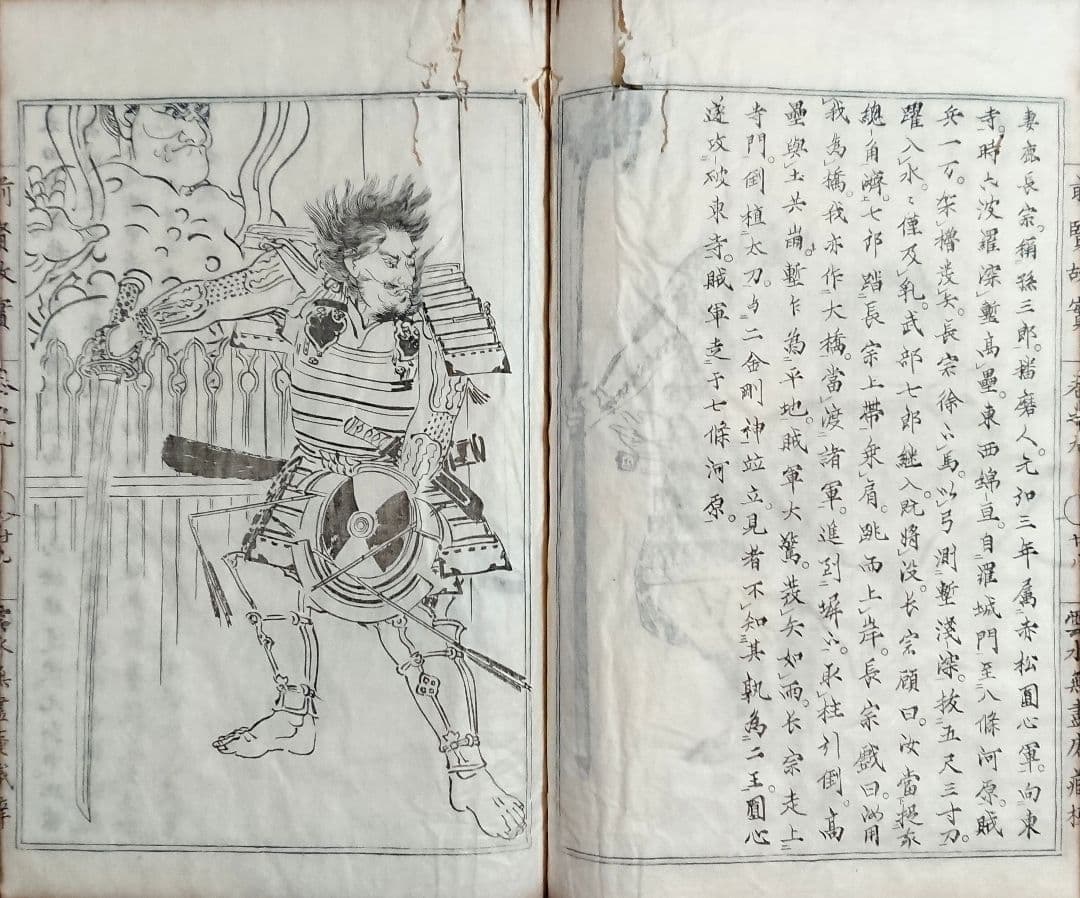 前賢故實
妻鹿長宗。稱孫三郎。播磨人。元弘三年属赤松圓心軍。向東
寺。時六波羅深塹高壘。東西綿亘。自羅城門至八條河原。賊
兵一万。架櫓發矢。長宗徐下馬。以弓測塹淺深。抜五尺三寸刀。
躍入水。々僅及乳。武部七郎継入。既將没。长宗顧曰。汝當捉我
總角濟。七郎踏長宗上帯乗肩。跳而上岸。長宗戯曰。汝用
我為橋。我亦作大橋。當渡諸軍。進到塀下。取柱引倒。高
壘與土共崩。塹乍為平地。賊軍大驚。發矢如雨。长宗走上
寺門。倒植太刀。与二金剛神竝立。見者不知其孰為二王。圓心
遂攻破東寺。賊軍走于七條河原。
前賢故實